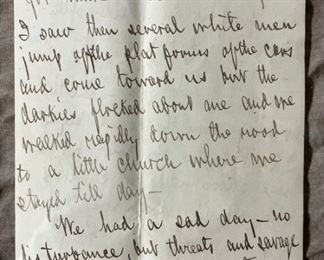 I saw then several white men
jump off the plat forms of the cars
and come toward us but the
darkies flocked about me and we
walked rapidly down the road
to a little church where we
stayed till day—
We had a sad day— no
disturbance, but threats and savage